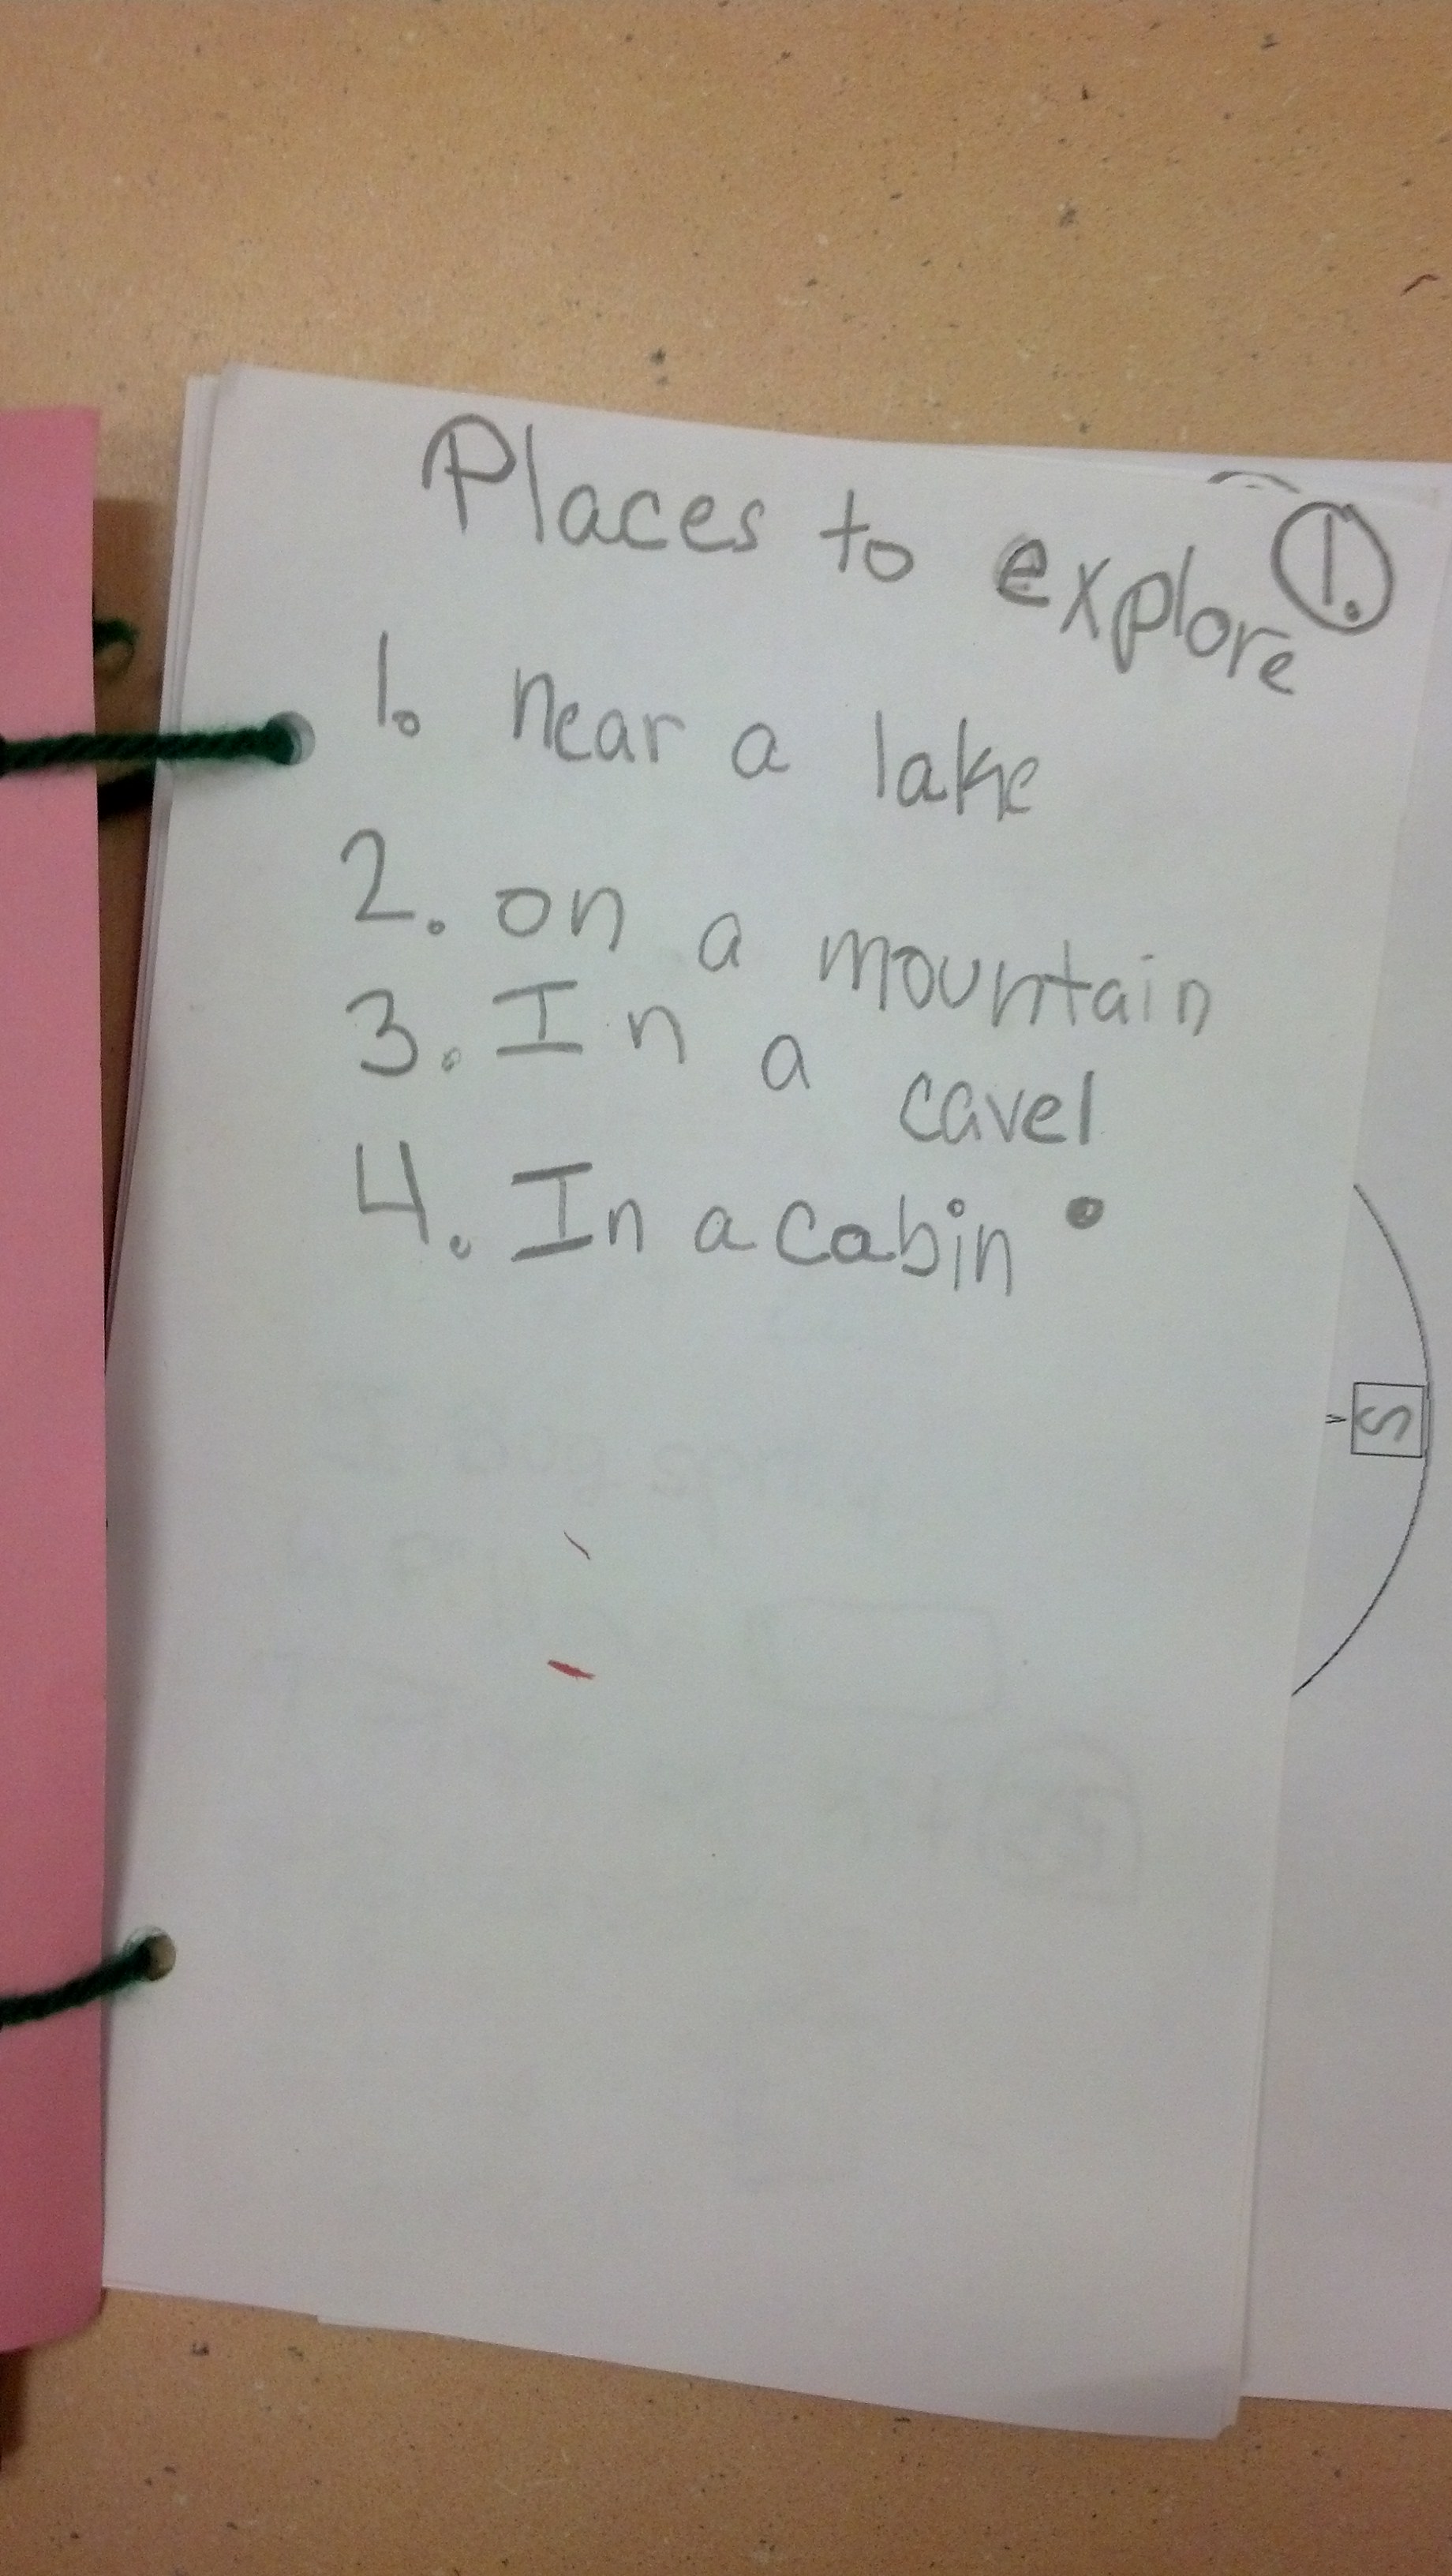 Places to explore 1.
1. near a lake
2. on a mountain
3. In a cavel
4. In a cabin.
S